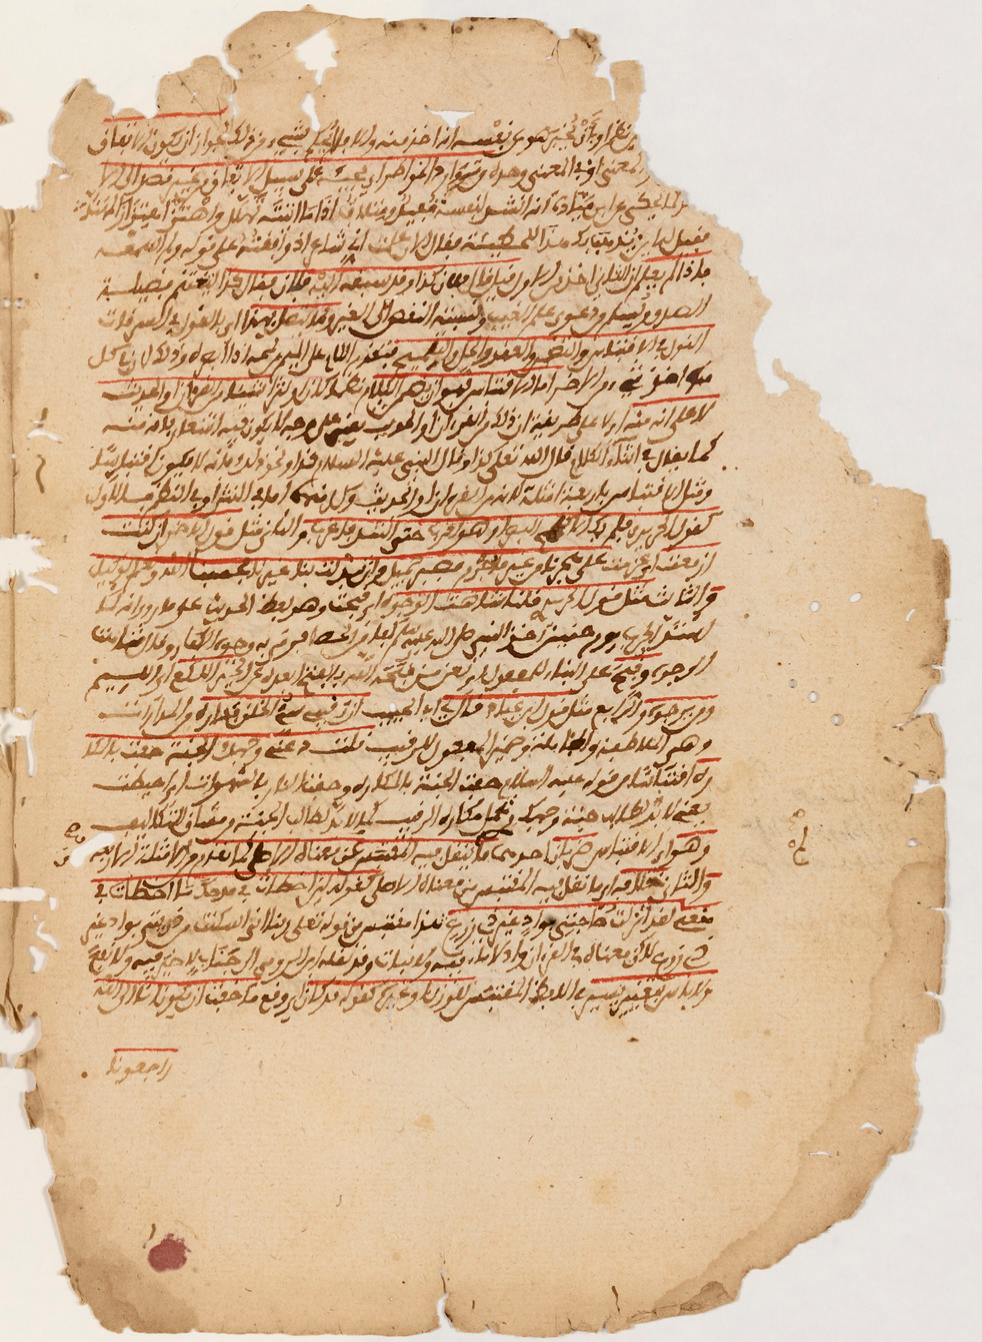 نظر او بان يخبر هو عن نفسه انه اخذ منه والا فلا يحكم بشيء من ذلك لجواز ان يكون الاتفاق
والمعنى او في المعنى وحده من توارد الخواطر اي مجيئه على سبيل الاتفاق من غير قصد الى الا
كما يحكى عن ابن ميادة انه انشد لنفسه مفيد ومتلاف اذا ما اتيته تهلل واهتز اهتزاز المهند
فقيل له اين يذهب بك هذا للحطيئة فقال الان علمت اني شاعر اذ وافقته على قوله ولم اسمعه
فاذا لم يعلم ان الثاني اخذ من الاول قيل قال فلان كذا وقد سبقه اليه فلان فقال كذا ليغتنم فضيلة
الصدق ويسلم من دعوى علم الغيب ونسبة النقص الى الغير ومما يتصل بهذا اي بالقول في السرقات
القول في الاقتباس والتضمين والعقد والحل والتلميح بتقديم اللام على الميم من لمحه اذا ابصره وذلك لان في كل
منها اخذ شيء من الاخر اما الاقتباس فهو ان يضمن الكلام نظما كان او نثرا شيئا من القرءان او الحديث
لا على انه منه اي لا على طريقة ان ذلك من القرءان او الحديث يعني على وجه لا يكون فيه اشعار بانه منه
كما يقال في اثناء الكلام قال الله تعلى كذا وقال النبي عليه السلام كذا ونحو ذلك فانه لا يكون اقتباسا
ومثل للاقتباس باربعة امثلة لانه من القرءان او الحديث وكل منهما اما في النثر او في النظم فالاول
كقول الحريري فلم يكن الا كلمح البصر او هو اقرب حتى انشد فاغرب والثاني مثل قول الاخر ان كنت
ازمعت اي عزمت على هجرنا من غير ما جرم فصبر جميل وان تبدلت بنا غيرنا فحسبنا الله ونعم الوكيل
والثالث مثل قول الحريري قلنا شاهت الوجوه اي قبحت وهو لفظ الحديث على ما روي انه لما
اشتد الحرب يوم حنين اخذ النبي صلى الله عليه وسلم كفا من الحصا فرمى به وجوه الكفار وقال شاهت
الوجوه وقبح على البناء للمفعول اي لعن من قبحه الله بالفتح ابعده عن الخير اللكع اي اللئيم
ومن يرجوه والرابع مثل قول ابن عباد قال اي الحبيب ان رقيبي سيئ الخلق فداره من المدارات
وهي الملاطفة وضمير المفعول للرقيب قلت دعني وجهك الجنة حفت بالمكا
ره اقتباسا من قوله عليه السلام حفت الجنة بالمكاره وحفت النار بالشهوات اي احيطت
يعني لا بد لطالب جنة وجهك من تحمل مكاره الرقيب كما لا بد لطالب الجنة من مشاق التكاليف
وهو اي الاقتباس ضربان احدهما ما لم ينقل فيه المقتبس عن معناه الاصلي كما تقدم من الامثلة الاربعة
والثاني خلافه اي ما نقل فيه المقتبس عن معناه الاصلي كقوله لئن اخطات في مدحك ما اخطات في
منعي لقد انزلت حاجاتي بواد غير ذي زرع هذا مقتبس من قوله تعلى ربنا اني اسكنت من ذريتي بواد غير
ذي زرع لكن معناه في القرءان واد لا ماء فيه ولا نبات وقد نقله ابن الرومي الى جناب لا خير فيه ولا نفع
ولا باس بتغيير يسير في اللفظ المقتبس للوزن او غيره كقوله قد كان اي وقع ما خفت ان يكونا انا الى الله
راجعونا